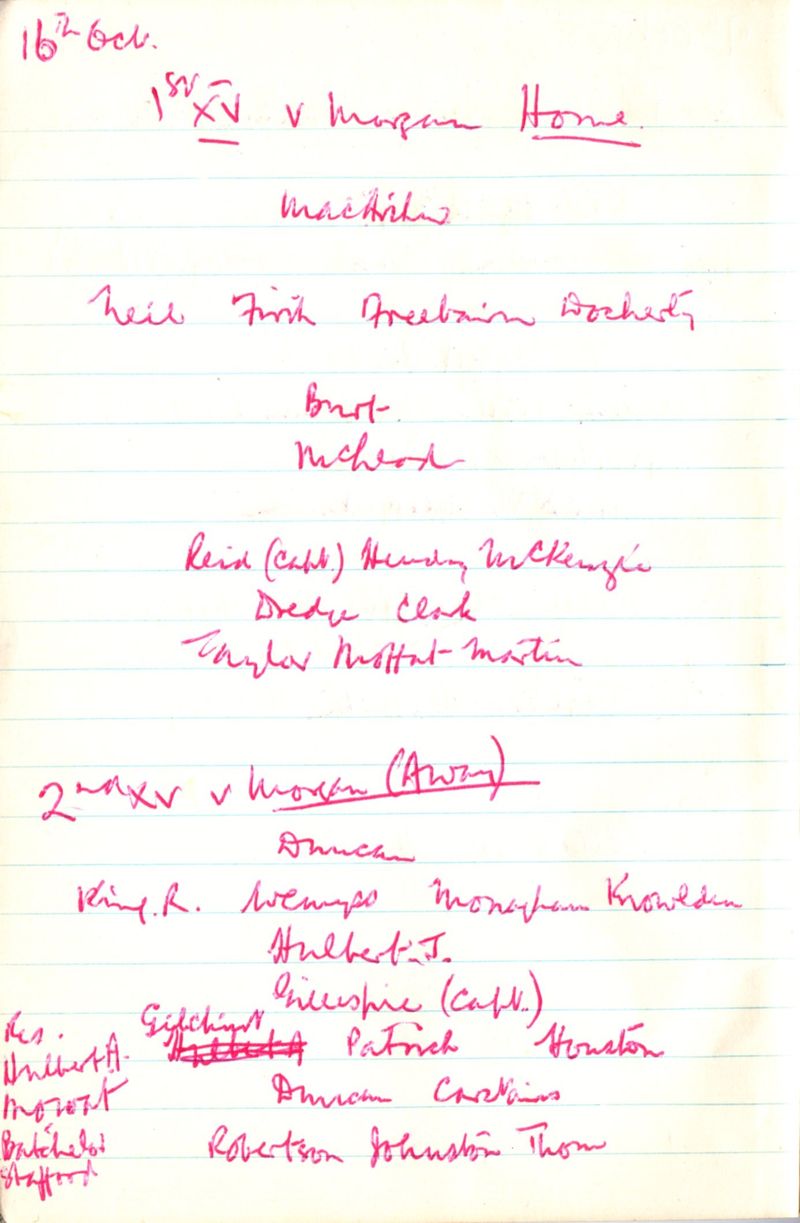 16th Oct.
1st XV v Morgan Home
Neil Firth Freebairn Docherty
Burt
McLeod
Reid (Capt.) Hendry McKenzie
Dredge Clark
Taylor Moffat Martin
2nd XV v Morgan (Away)
Duncan
King. R. Wemyss Monaghan Knowlden
Hulbert. J.
Gillespie (Capt.)
Gilchrist
Hulbert A Patrick Houston
Duncan Carstairs
Robertson Johnston Thom
Res.
Hulbert A.
Mowat
Batchelor
Stafford